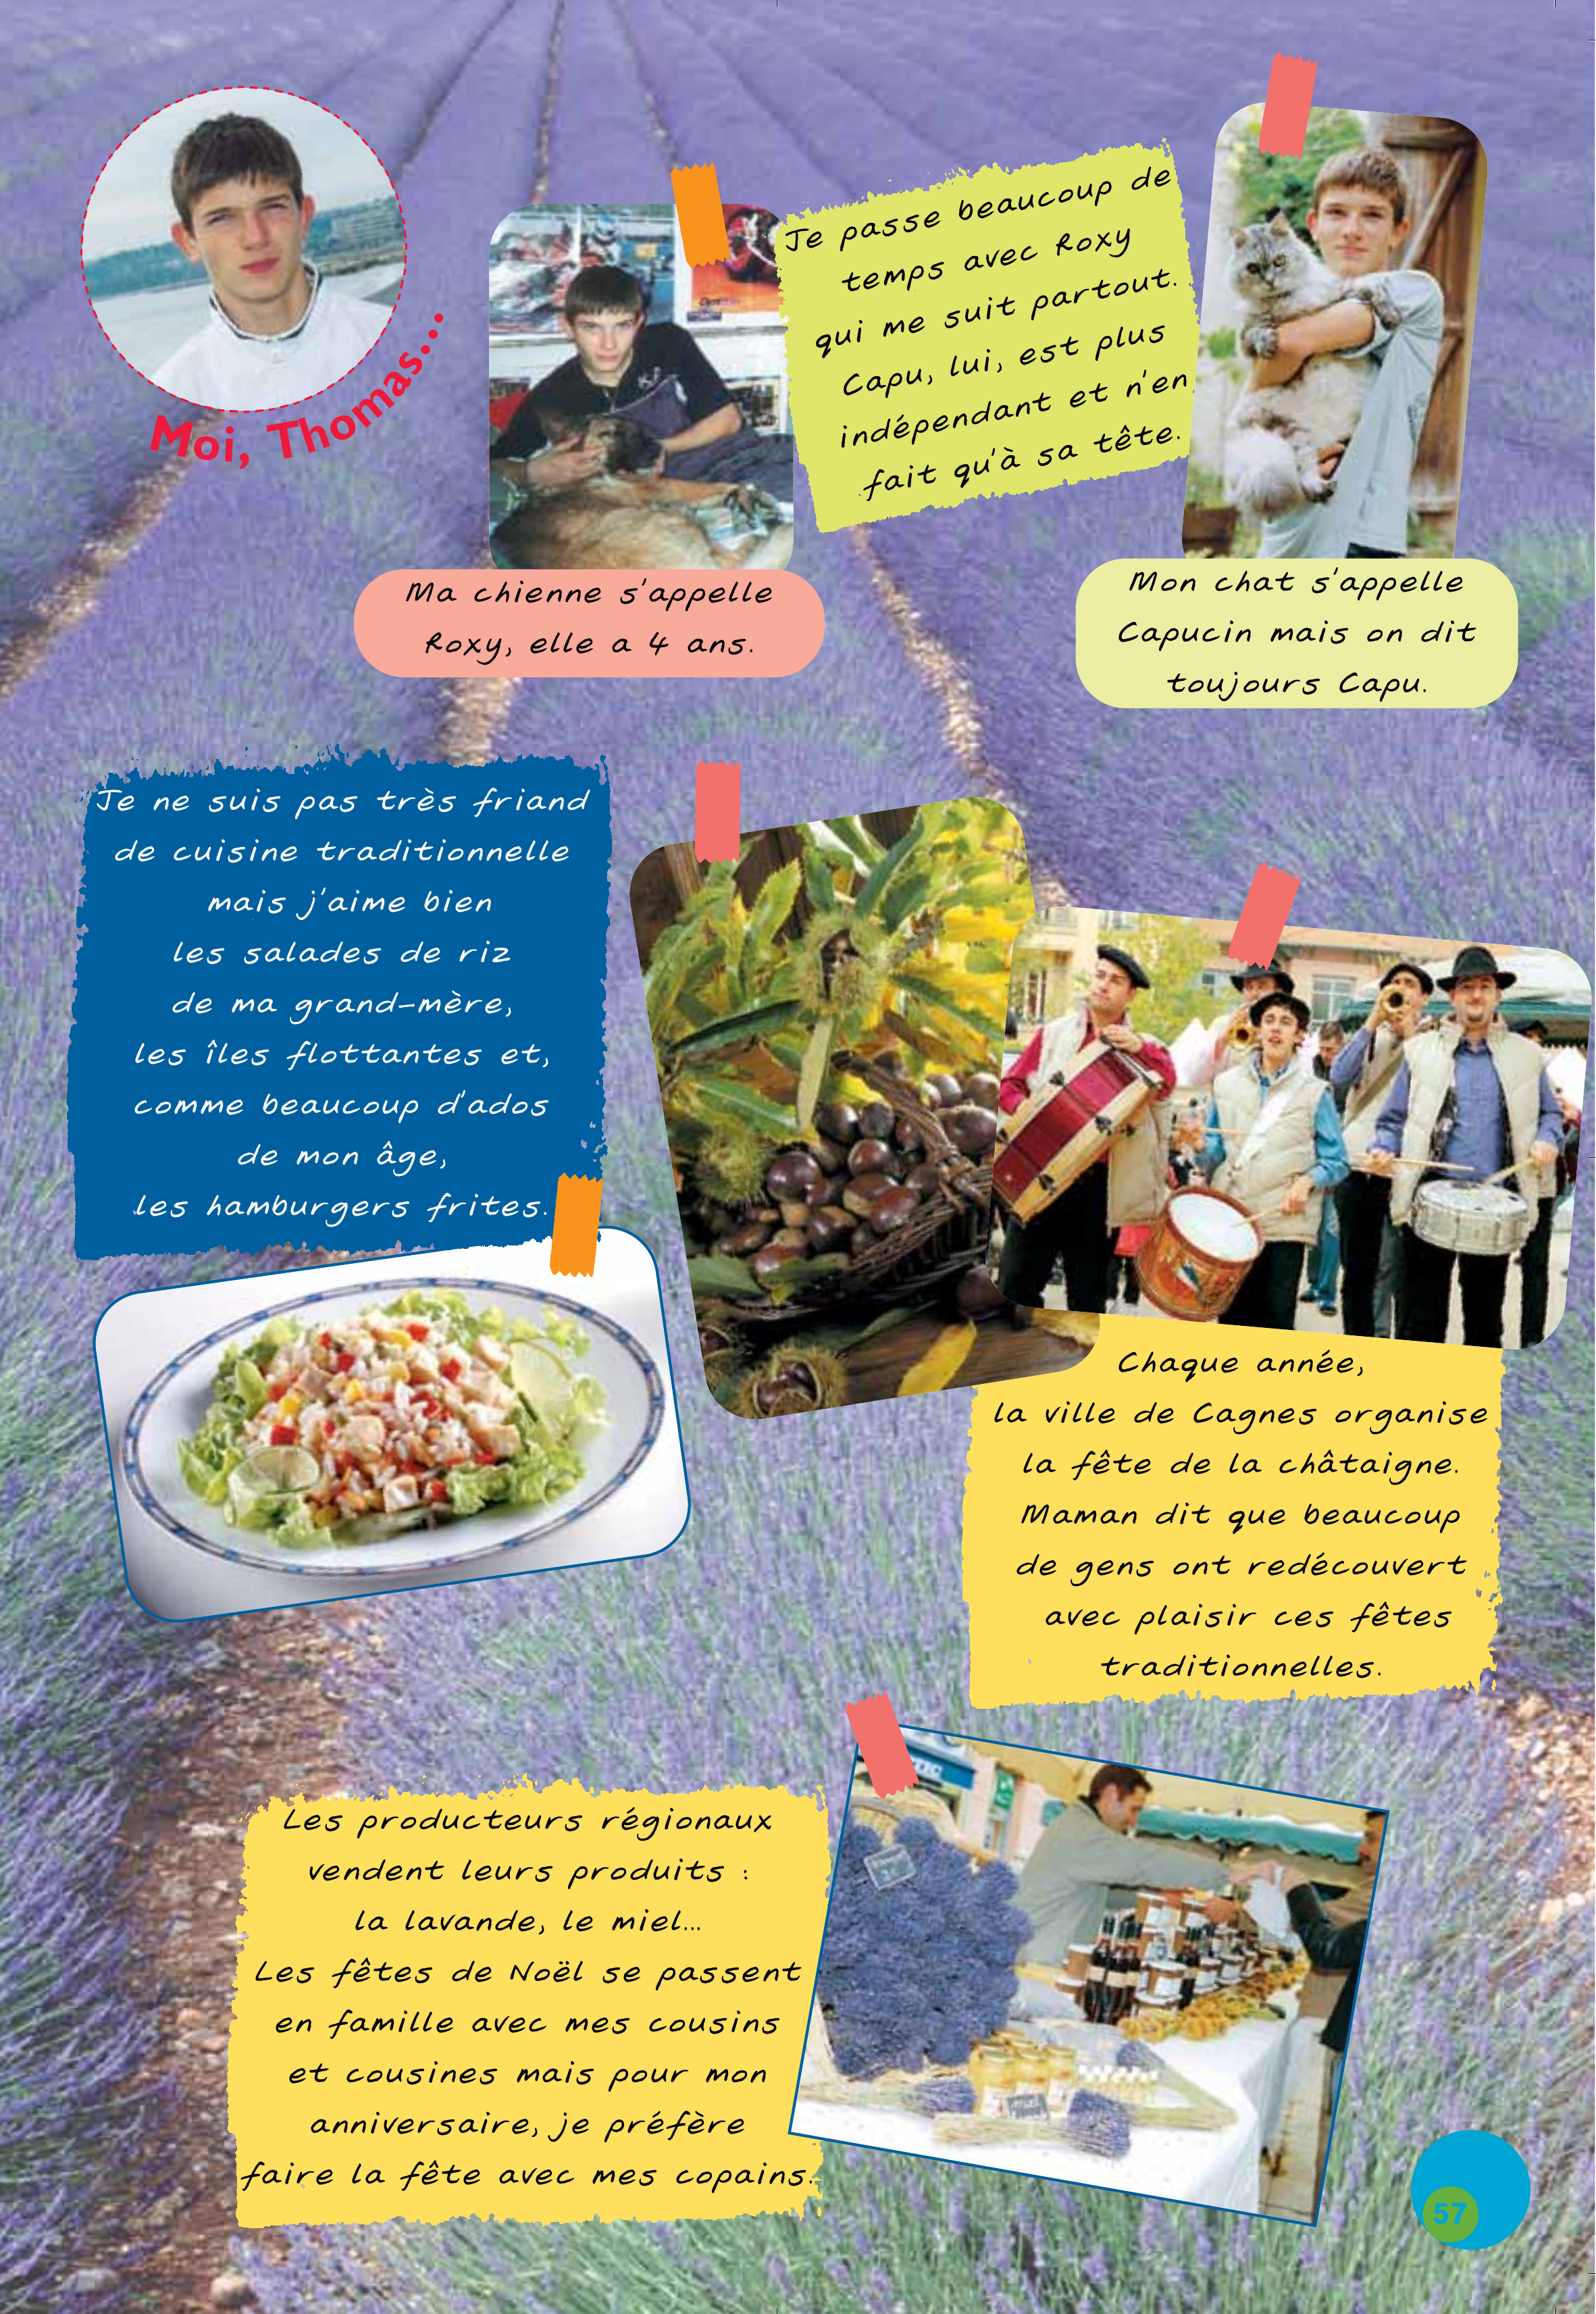 Moi, Thomas...
Je passe beaucoup de
temps avec Roxy
qui me suit partout.
Capu, lui, est plus
indépendant et n'en
fait qu'à sa tête.
Ma chienne s'appelle
Roxy, elle a 4 ans.
Mon chat s'appelle
Capucin mais on dit
toujours Capu.
Je ne suis pas très friand
de cuisine traditionnelle
mais j'aime bien
les salades de riz
de ma grand-mère,
les îles flottantes et,
comme beaucoup d'ados
de mon âge,
les hamburgers frites.
Chaque année,
la ville de Cagnes organise
la fête de la châtaigne.
Maman dit que beaucoup
de gens ont redécouvert
avec plaisir ces fêtes
traditionnelles.
Les producteurs régionaux
vendent leurs produits :
la lavande, le miel...
Les fêtes de Noël se passent
en famille avec mes cousins
et cousines mais pour mon
anniversaire, je préfère
faire la fête avec mes copains.
57